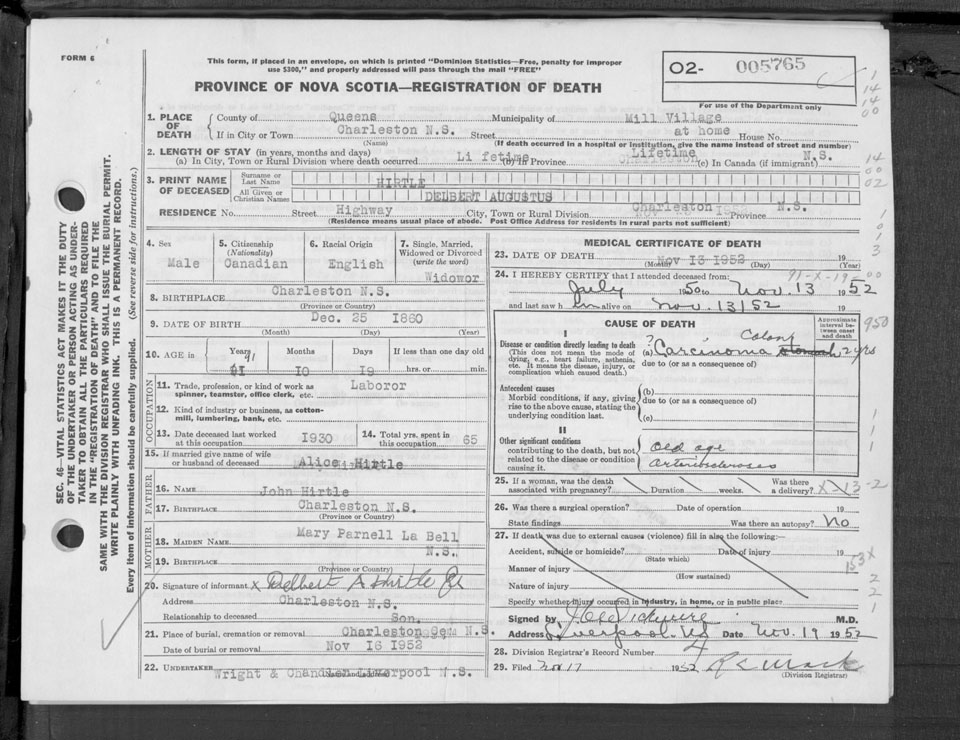 FORM 6
This form, if placed in an envelope, on which is printed "Dominion Statistics—Free, penalty for improper
use $300," and properly addressed will pass through the mail "FREE"
PROVINCE OF NOVA SCOTIA—REGISTRATION OF DEATH
O2- 005765
For use of the Department only
1. PLACE OF DEATH
County of Queens Municipality of Mill Village
If in City or Town Charleston N.S. Street at home House No.
(Name) (If death occurred in a hospital or institution, give the name instead of street and number)
2. LENGTH OF STAY (in years, months and days)
(a) In City, Town or Rural Division where death occurred Li fetime (b) In Province Lifetime (c) In Canada (if immigrant) N.S.
3. PRINT NAME OF DECEASED
Surname or Last Name HIRTLE
All Given or Christian Names DELBERT AUGUSTUS
RESIDENCE No. Street Highway City, Town or Rural Division Charleston Province N.S.
(Residence means usual place of abode. Post Office Address for residents in rural parts not sufficient)
4. Sex Male
5. Citizenship (Nationality) Canadian
6. Racial Origin English
7. Single, Married, Widowed or Divorced (write the word) Widowor
8. BIRTHPLACE Charleston N.S.
(Province or Country)
9. DATE OF BIRTH Dec. 25 I860
(Month) (Day) (Year)
10. AGE in Years 91 Months IO Days I9 If less than one day old
hrs. or min.
OCCUPATION
11. Trade, profession, or kind of work as spinner, teamster, office clerk, etc. Laboror
12. Kind of industry or business, as cotton-mill, lumbering, bank, etc.
13. Date deceased last worked at this occupation I930
14. Total yrs. spent in this occupation 65
15. If married give name of wife or husband of deceased Alice Hirtle
FATHER
16. NAME John Hirtle
17. BIRTHPLACE Charleston N.S.
(Province or Country)
MOTHER
18. MAIDEN NAME Mary Parnell La Bell
19. BIRTHPLACE N.S.
(Province or Country)
20. Signature of informant x Delbert A Hirtle Jr
Address Charleston N.S.
Relationship to deceased Son.
21. Place of burial, cremation or removal Charleston Cem N.S.
Date of burial or removal Nov I6 I952
22. UNDERTAKER Wright & Chandler Liverpool N.S.
(Name and address)
MEDICAL CERTIFICATE OF DEATH
23. DATE OF DEATH Nov I3 I952
(Month) (Day) (Year)
24. I HEREBY CERTIFY that I attended deceased from:
July 1950 to Nov. 13 1952
and last saw him alive on Nov. 13/52 19
CAUSE OF DEATH
Approximate interval between onset and death
I
Disease or condition directly leading to death
(This does not mean the mode of dying, e.g., heart failure, asthenia, etc. It means the disease, injury, or complication which caused death.)
(a) Carcinoma Colon ? 2 yrs
due to (or as a consequence of)
Antecedent causes
Morbid conditions, if any, giving rise to the above cause, stating the underlying condition last.
(b)
due to (or as a consequence of)
(c)
II
Other significant conditions contributing to the death, but not related to the disease or condition causing it.
old age
arteriosclerosis
25. If a woman, was the death associated with pregnancy? Duration weeks. Was there a delivery?
26. Was there a surgical operation? Date of operation 19
State findings Was there an autopsy? No
27. If death was due to external causes (violence) fill in also the following:—
Accident, suicide or homicide? Date of injury 19
(State which)
Manner of injury
(How sustained)
Nature of injury
Specify whether injury occurred in industry, in home, or in public place
Signed by M.D.
Address Liverpool NS Date Nov. 19 1952
28. Division Registrar's Record Number 4
29. Filed Nov 17 1952
(Division Registrar)
SEC. 46—VITAL STATISTICS ACT MAKES IT THE DUTY
OF THE UNDERTAKER OR PERSON ACTING AS UNDER-
TAKER TO OBTAIN ALL THE PARTICULARS REQUIRED
IN THE "REGISTRATION OF DEATH" AND TO FILE THE
SAME WITH THE DIVISION REGISTRAR WHO SHALL ISSUE THE BURIAL PERMIT.
WRITE PLAINLY WITH UNFADING INK. THIS IS A PERMANENT RECORD.
Every item of information should be carefully supplied. (See reverse side for instructions.)